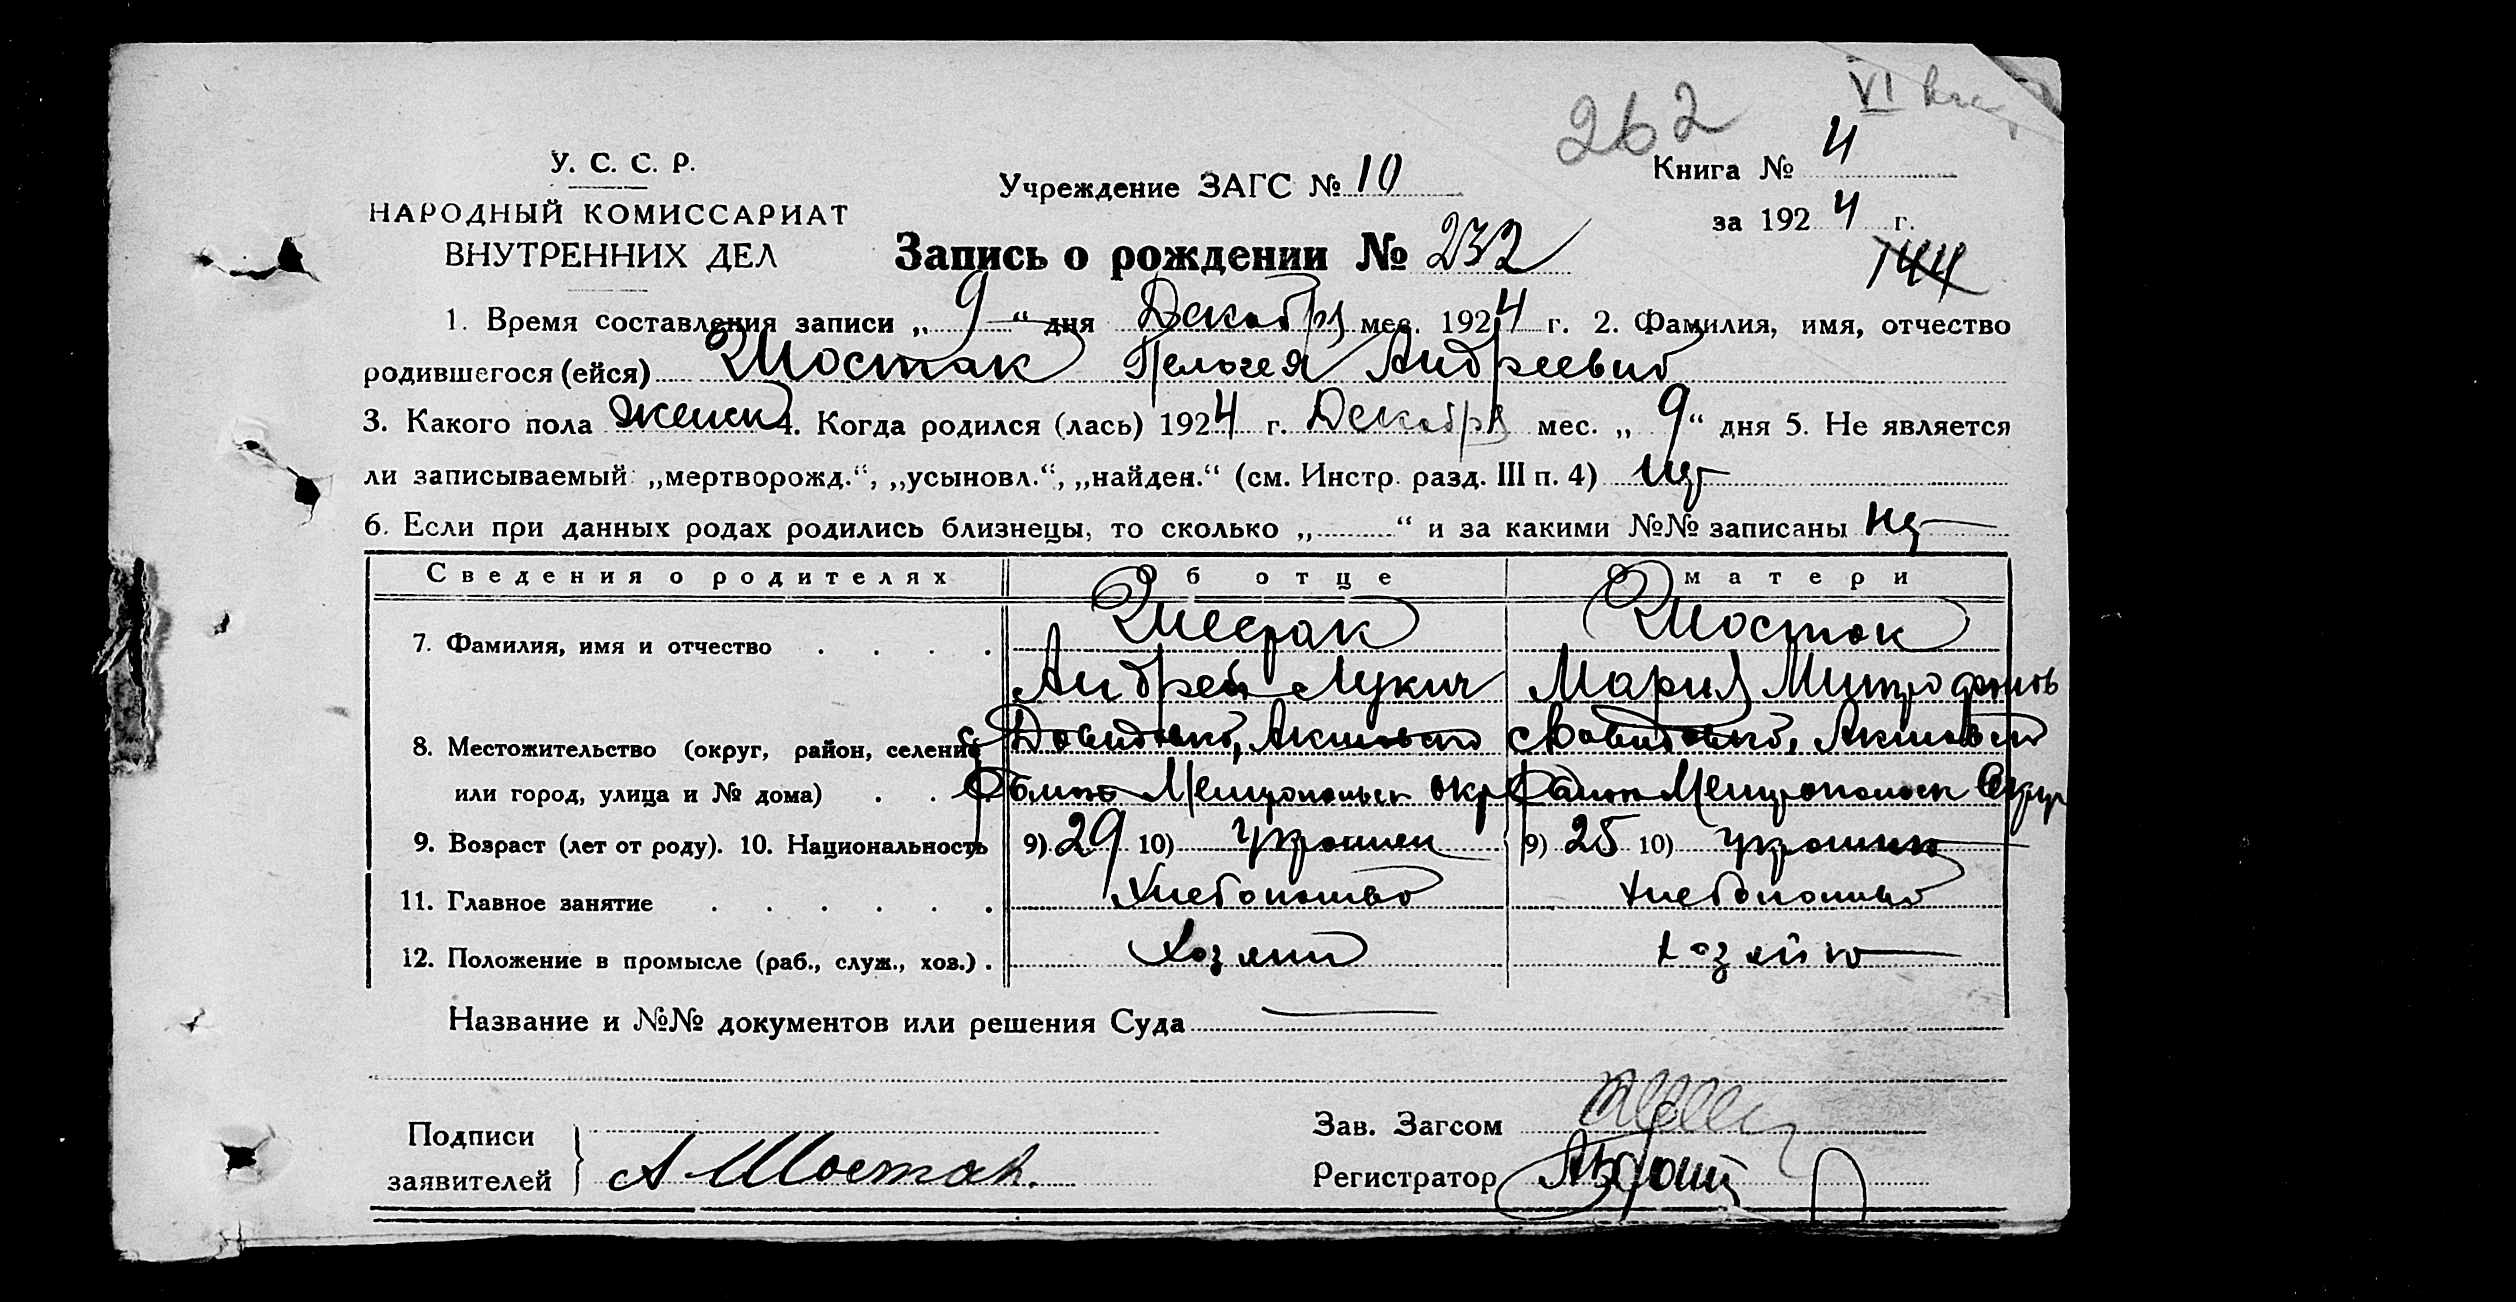 262
VI
У. С. С. Р.
НАРОДНЫЙ КОМИССАРИАТ
ВНУТРЕННИХ ДЕЛ
Учреждение ЗАГС № 10
Книга № 4
за 1924 г.
144
Запись о рождении № 232
1. Время составления записи „ 9 “ дня Декабря мес. 1924 г. 2. Фамилия, имя, отчество
родившегося (ейся) Шостак Пелагея Андреевно
3. Какого пола женск 4. Когда родился (лась) 1924 г. Декабря мес. „ 9 “ дня 5. Не является
ли записываемый: „мертворожд.“, „усыновл.“, „найден.“ (см. Инстр. разд. III п. 4)
6. Если при данных родах родились близнецы, то сколько „ “ и за какими №№ записаны
Сведения о родителях Об отце О матери
7. Фамилия, имя и отчество Шостак Шостак
Андрей Лукич Мария Митрофонов
8. Местожительство (округ, район, селение
или город, улица и № дома) Мелитопольск окр Район Мелитопольск Окру
9. Возраст (лет от роду). 10. Национальность 9) 29 10) Украинец 9) 25 10) Украинка
11. Главное занятие Хлебопашество Хлебопашество
12. Положение в промысле (раб., служ., хоз.) Хозяин хозяйка
Название и №№ документов или решения Суда —
Подписи
заявителей А Шостак.
Зав. Загсом
Регистратор